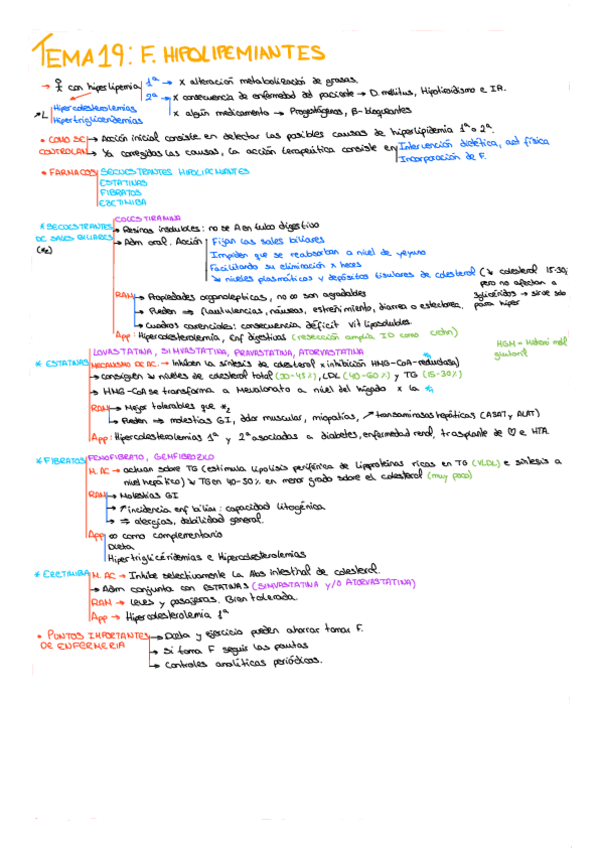 TEMA 19: F. HIPOLIPEMIANTES
→ con hiperlipemia 1ª → x alteración metabolización de grasas.
2ª → x consecuencia de enfermedad del paciente → D. mellitus, Hipotiroidismo e IR.
x algún medicamento → Progestágenos, β-bloqueantes
Hipercolesterolemias
Hipertrigliceridemias
• COMO SE CONTROLAN → Acción inicial consiste en detectar las posibles causas de hiperlipidemia 1ª o 2ª.
→ Ya corregidas las causas, la acción terapéutica consiste en Intervención dietética, act física
Incorporación de F.
• FARMACOS SECUESTRANTES HIPOLIPEMIANTES
ESTATINAS
FIBRATOS
EZETIMIBA
COLESTIRAMINA
* SECUESTRANTES DE SALES BILIARES (*2) → Resinas insolubles: no se A en tubo digestivo
→ Adm oral. Acción Fijan las sales biliares
Impiden que se reabsorban a nivel de yeyuno
Facilitando su eliminación x heces
↘ niveles plasmáticos y depósitos tisulares de colesterol (↘ colesterol 15-30; pero no afectan a triglicéridos → sirve solo para hiper
RAM → Propiedades organolepticas, no son agradables
→ Pueden ⇒ flatulencias, náuseas, estreñimiento, diarrea o esteatorrea.
→ Cuadros carenciales: consecuencia déficit vit liposolubles.
App: Hipercolesterolemia, Enf digestivas (resección amplia ID como crohn)
LOVASTATINA, SIMVASTATINA, PRAVASTATINA, ATORVASTATINA
HGM = Hidroxi metil glutaril
* ESTATINAS MECANISMO DE AC. → Inhiben la síntesis de colesterol x inhibición HMG-CoA-reductasa) *1
→ consiguen ↘ niveles de colesterol total (30-45%), LDL (40-60%) y TG (15-30%)
→ HMG-CoA se transforma a Mevalonato a nivel del hígado x la *1
RAM → Mejor tolerables que *2
→ Pueden ⇒ molestias GI, dolor muscular, miopatías, ↗ transaminasas hepáticas (ASAT y ALAT)
App: Hipercolesterolemias 1ª y 2ª asociadas a diabetes, enfermedad renal, trasplante de ♡ e HTA.
* FIBRATOS FENOFIBRATO, GEMFIBROZILO
M. AC → actúan sobre TG (estimula lipolisis periférica de lipoproteínas ricas en TG (VLDL) e síntesis a nivel hepático) ↘ TG en 40-50% en menor grado sobre el colesterol (muy poco)
RAM → Molestias GI
→ ↑ incidencia enf biliar: capacidad litogénica
→ ⇒ alergias, debilidad general.
App ∞ como complementario
Dieta
Hipertrigliceridemias e Hipercolesterolemias
* EZETIMIBA M. AC → Inhibe selectivamente la Abs intestinal de colesterol.
→ Adm conjunta con ESTATINAS (SIMVASTATINA y/o ATORVASTATINA)
RAM → Leves y pasajeras. Bien tolerada.
App → Hipercolesterolemia 1ª
• PUNTOS IMPORTANTES DE ENFERMERIA → Dieta y ejercicio pueden ahorrar tomar F.
→ Si toma F seguir las pautas
→ Controles analíticos periódicos.